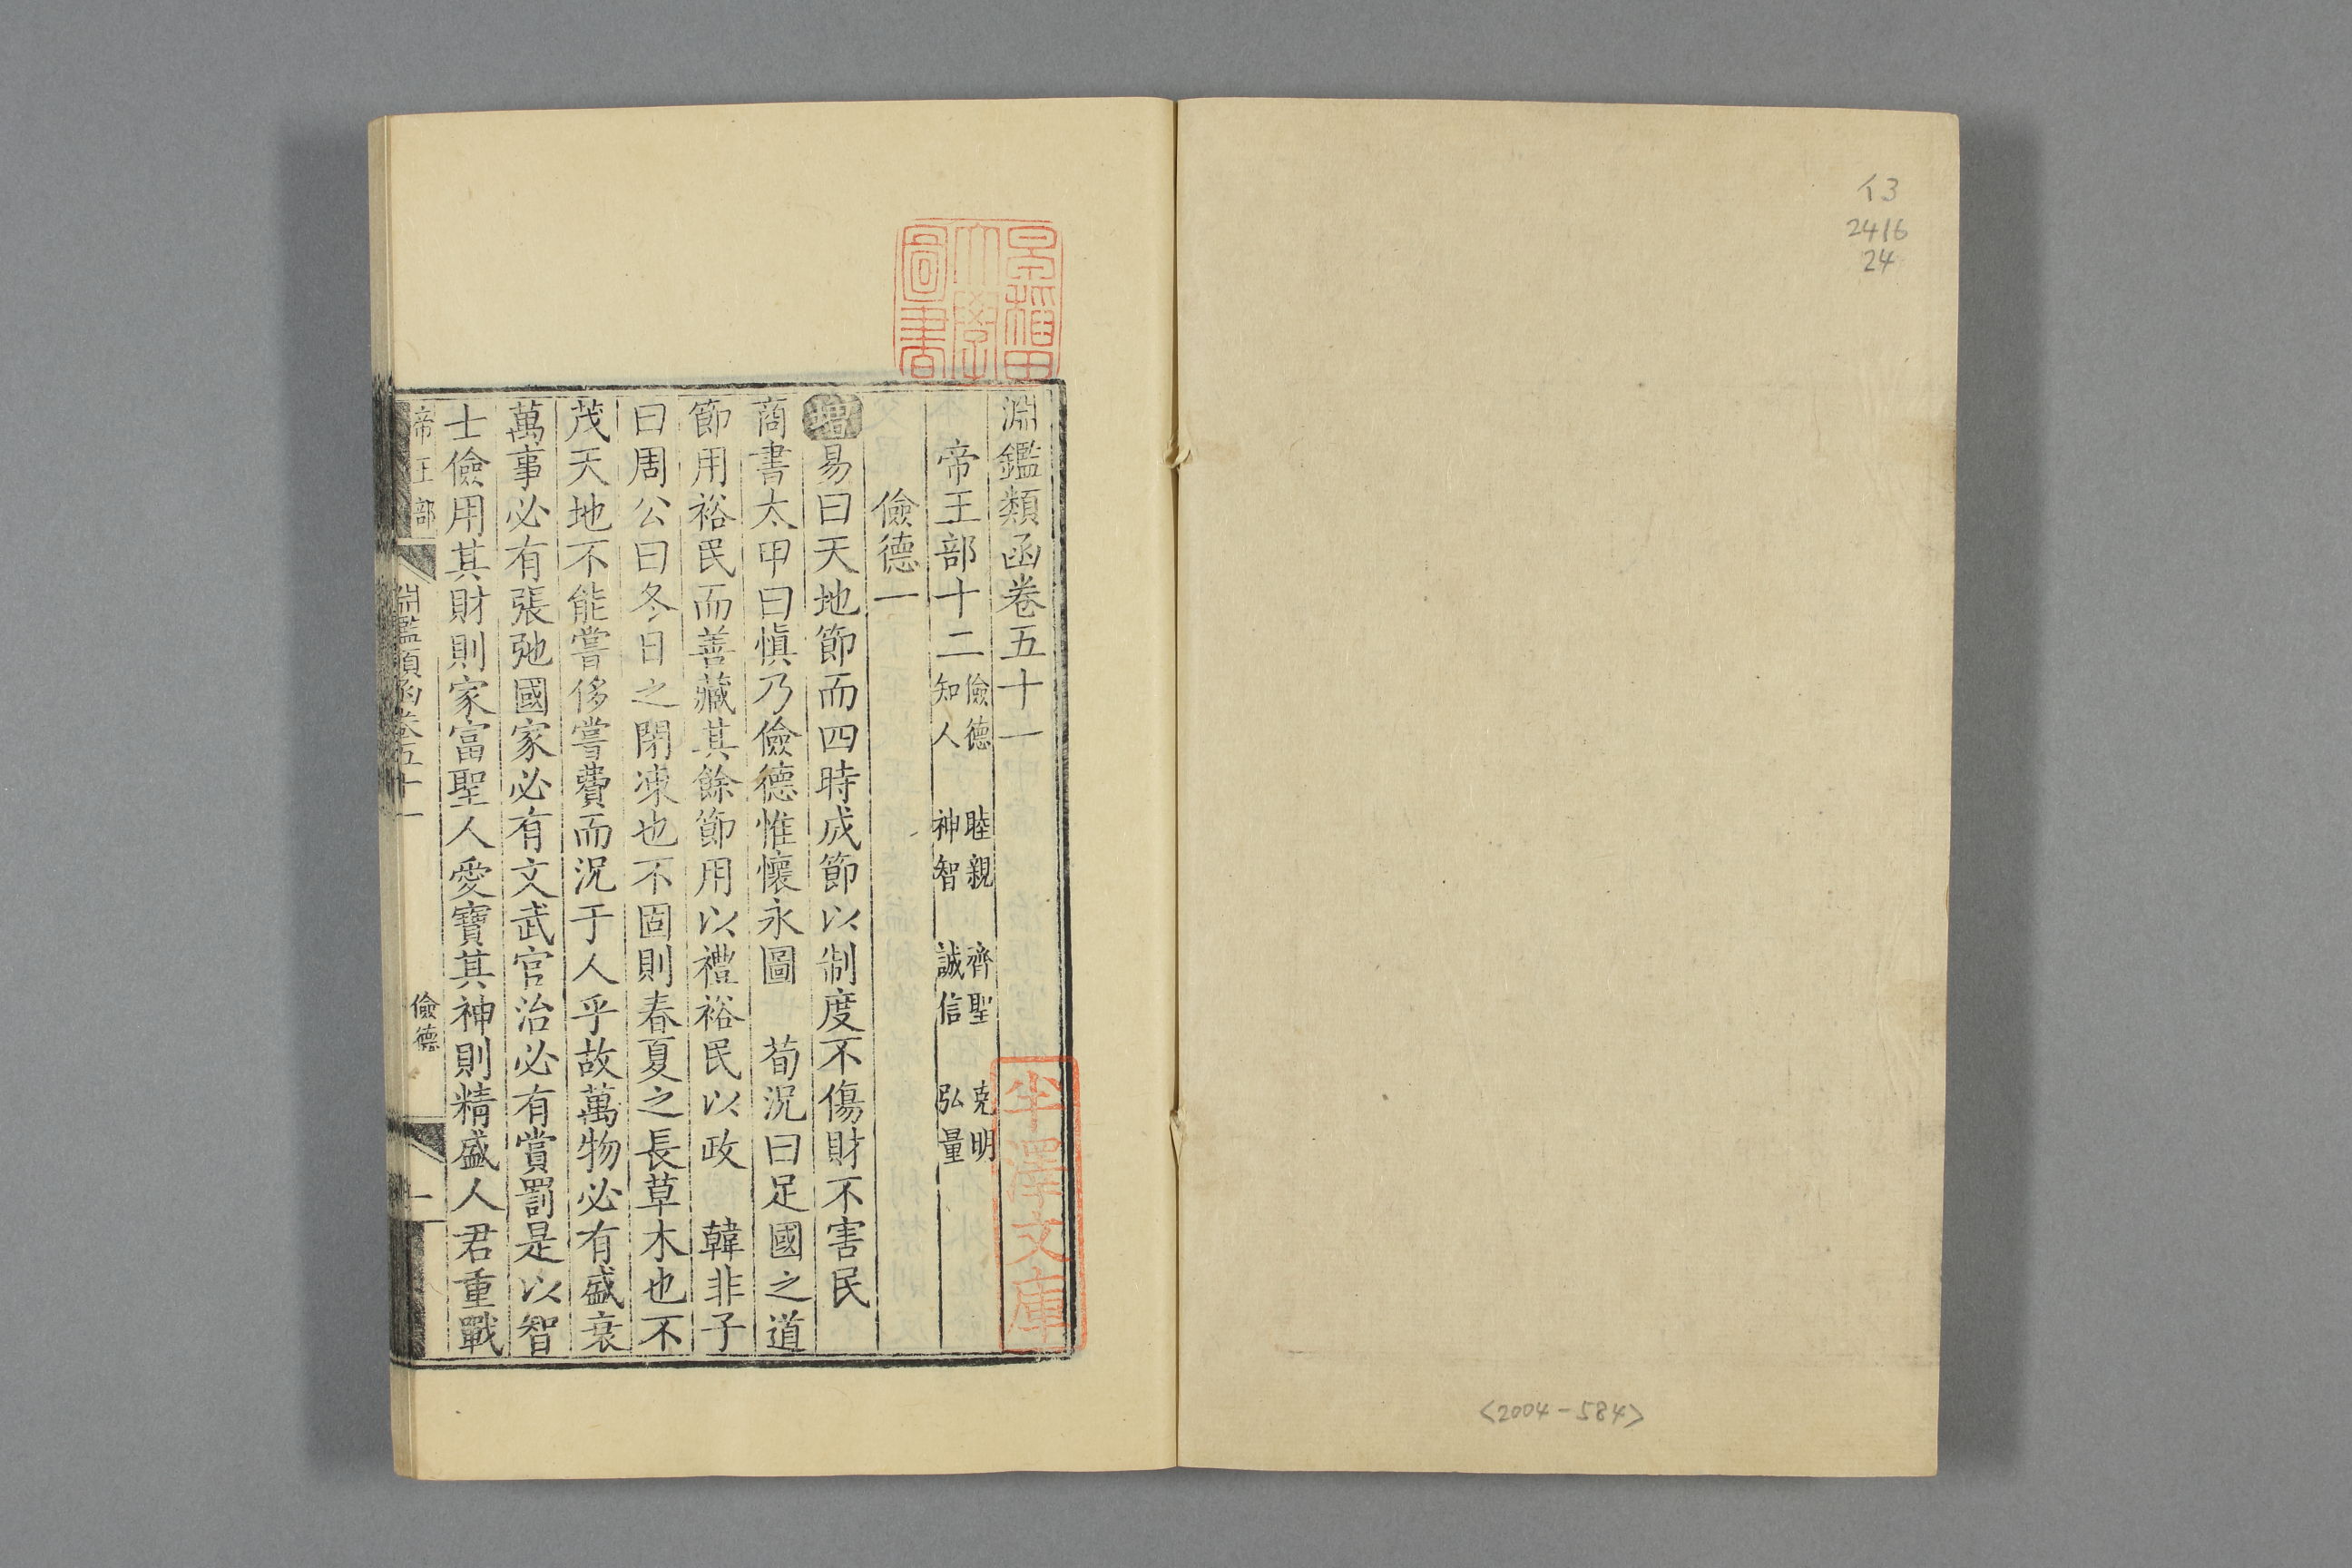 イ3
2416
24
<2004-584>
早稲田大學圖書
半澤文庫
淵鑑類函卷五十一
帝王部十二 儉德 睦親 齊聖 克明
知人 神智 誠信 弘量
儉德一
增易曰天地節而四時成節以制度不傷財不害民
商書太甲曰慎乃儉德惟懷永圖 荀況曰足國之道
節用裕民而善藏其餘節用以禮裕民以政 韓非子
曰周公曰冬日之閉凍也不固則春夏之長草木也不
茂天地不能嘗侈嘗費而況于人乎故萬物必有盛衰
萬事必有張弛國家必有文武官治必有賞罰是以智
士儉用其財則家富聖人愛寶其神則精盛人君重戰
帝王部 淵鑑類函卷五十一 儉德 一